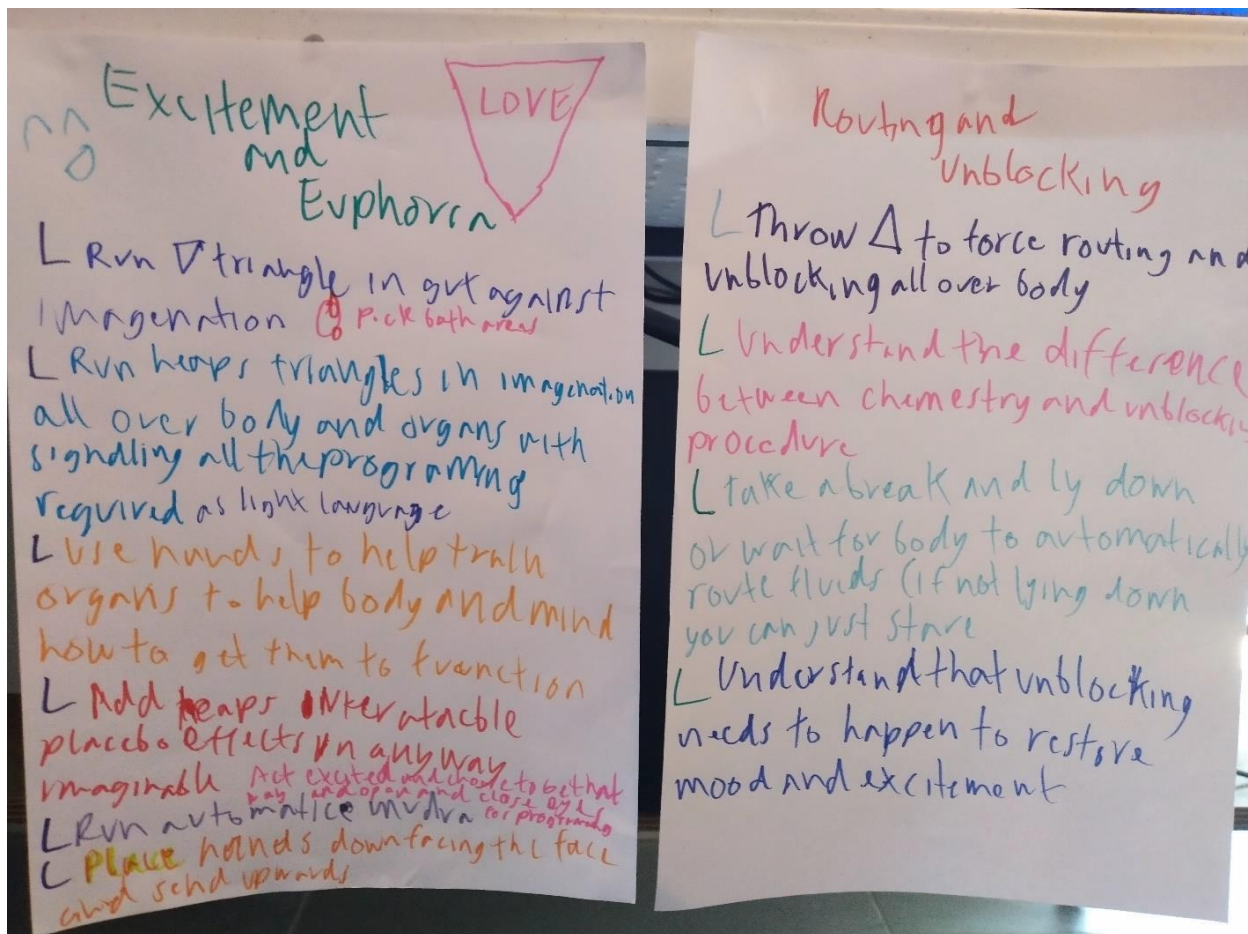 Excitement
and
Euphoria
LOVE
L Run ▽ triangle in gut against
imagenation Pick both areas
L Run heaps triangles in imagenation
all over body and organs with
signalling all the programing
required as light language
L use hands to help train
organs to help body and mind
how to get them to function
L Add heaps
placebo effects in anyway
imaginable Act excited and chose to be that
way and open and close eyes
L Run automatice mudra for programing
L Place hands down facing the face
and send upwards
Routing and
unblocking
L Throw △ to force routing and
unblocking all over body
L Understand the difference
between chemestry and
procedure
L take a break and ly down
or wait for body to automatically
route fluids (if not lying down
you can just stare
L Understand that unblocking
needs to happen to restore
mood and excitement